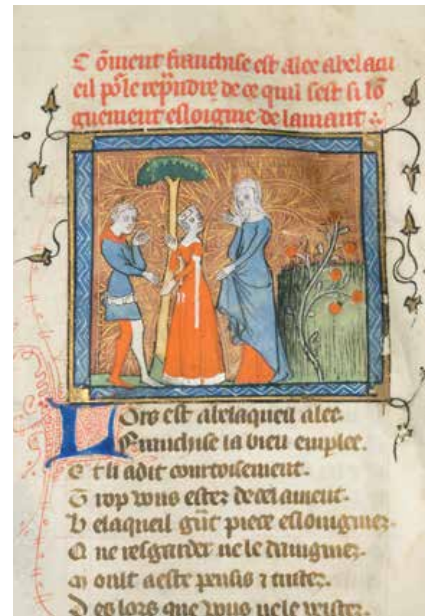 Cōment franchise est alee a bel acu
eil po᷑ le repʳndre de ce quil sest si lō
guement esloigne de lamant
Lors est a belaqueil alee
Franchise la bieu emplee.
Et li a dit courtoisement.
Trop vous estes de cel ament.
Belaqueil gn̄t piece esloingniez
Q̄ ne resgarder ne le daingniez.
Mōult a este pensis ⁊ tristes.
Des lors que vous ne le veistes.